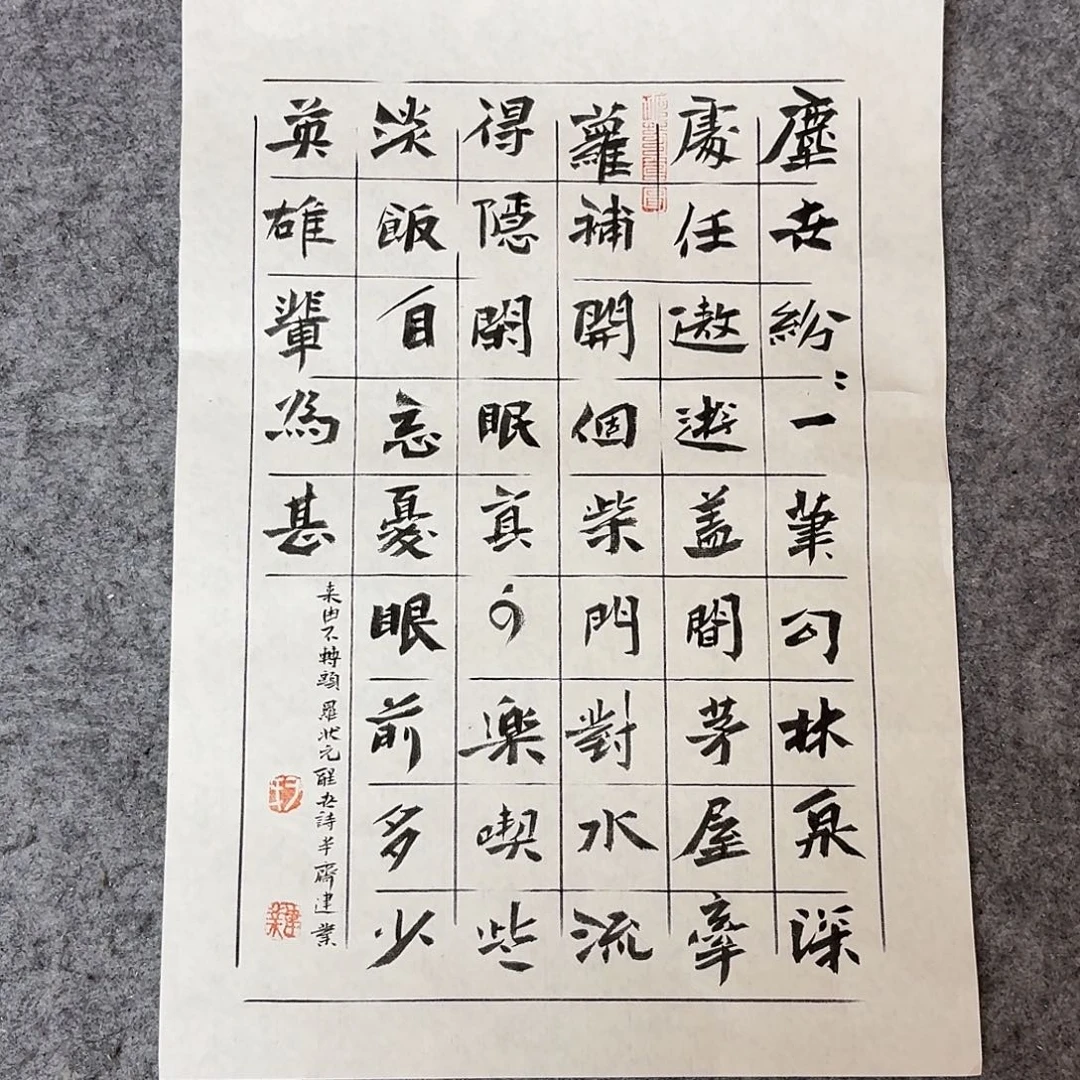 塵世紛：一筆勾林泉深
處任遨遊蓋間茅屋牽
蘿補開個柴門對水流
得隱閑眠真可樂喫些
淡飯自忘憂眼前多少
英雄輩為甚
来由不轉頭羅狀元醒世詩羊齋建業